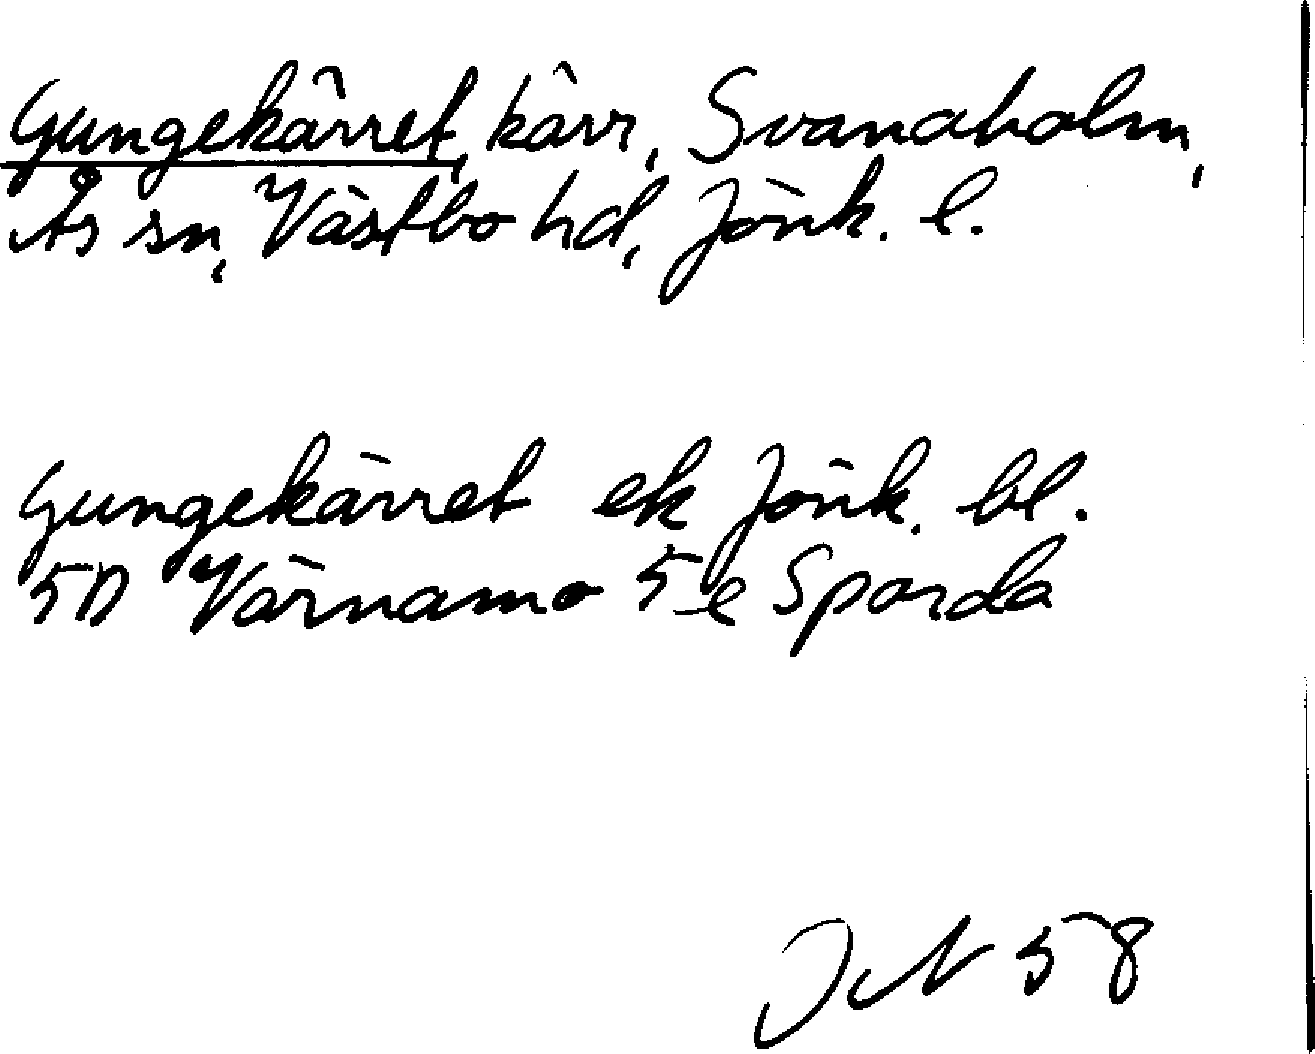 Gungekärret, kärr, Svanaholm,
Ås sn, Västbo hd, Jönk. l.
Gungekärret ek Jönk. bl.
5D Värnamo 5 e Sparda
58